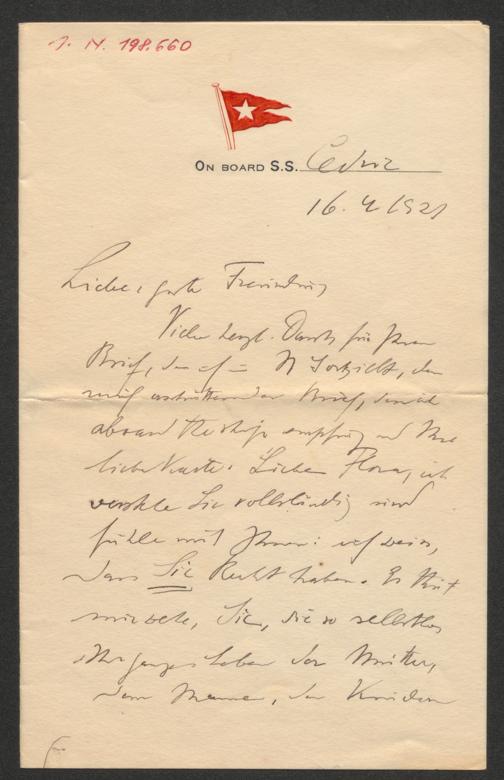 J. N. 198.660
ON BOARD S.S. Cedric
16. 4 1921
Liebe, gute Freundin,
Viele herzl. Dank für Ihren
Brief, den ich in N York erhielt, den
mich erschütternden Brief, den ich
aboard the ship empfing und Ihre
liebe Karte. Liebe Flora, ich
verstehe Sie vollständig und
fühle mit Ihnen: ich weiss,
dass Sie Recht haben. Es thut
mir wehe, Sie, die so selbstlos
Ihr ganzes Leben der Mutter,
dem Manne, den Kindern